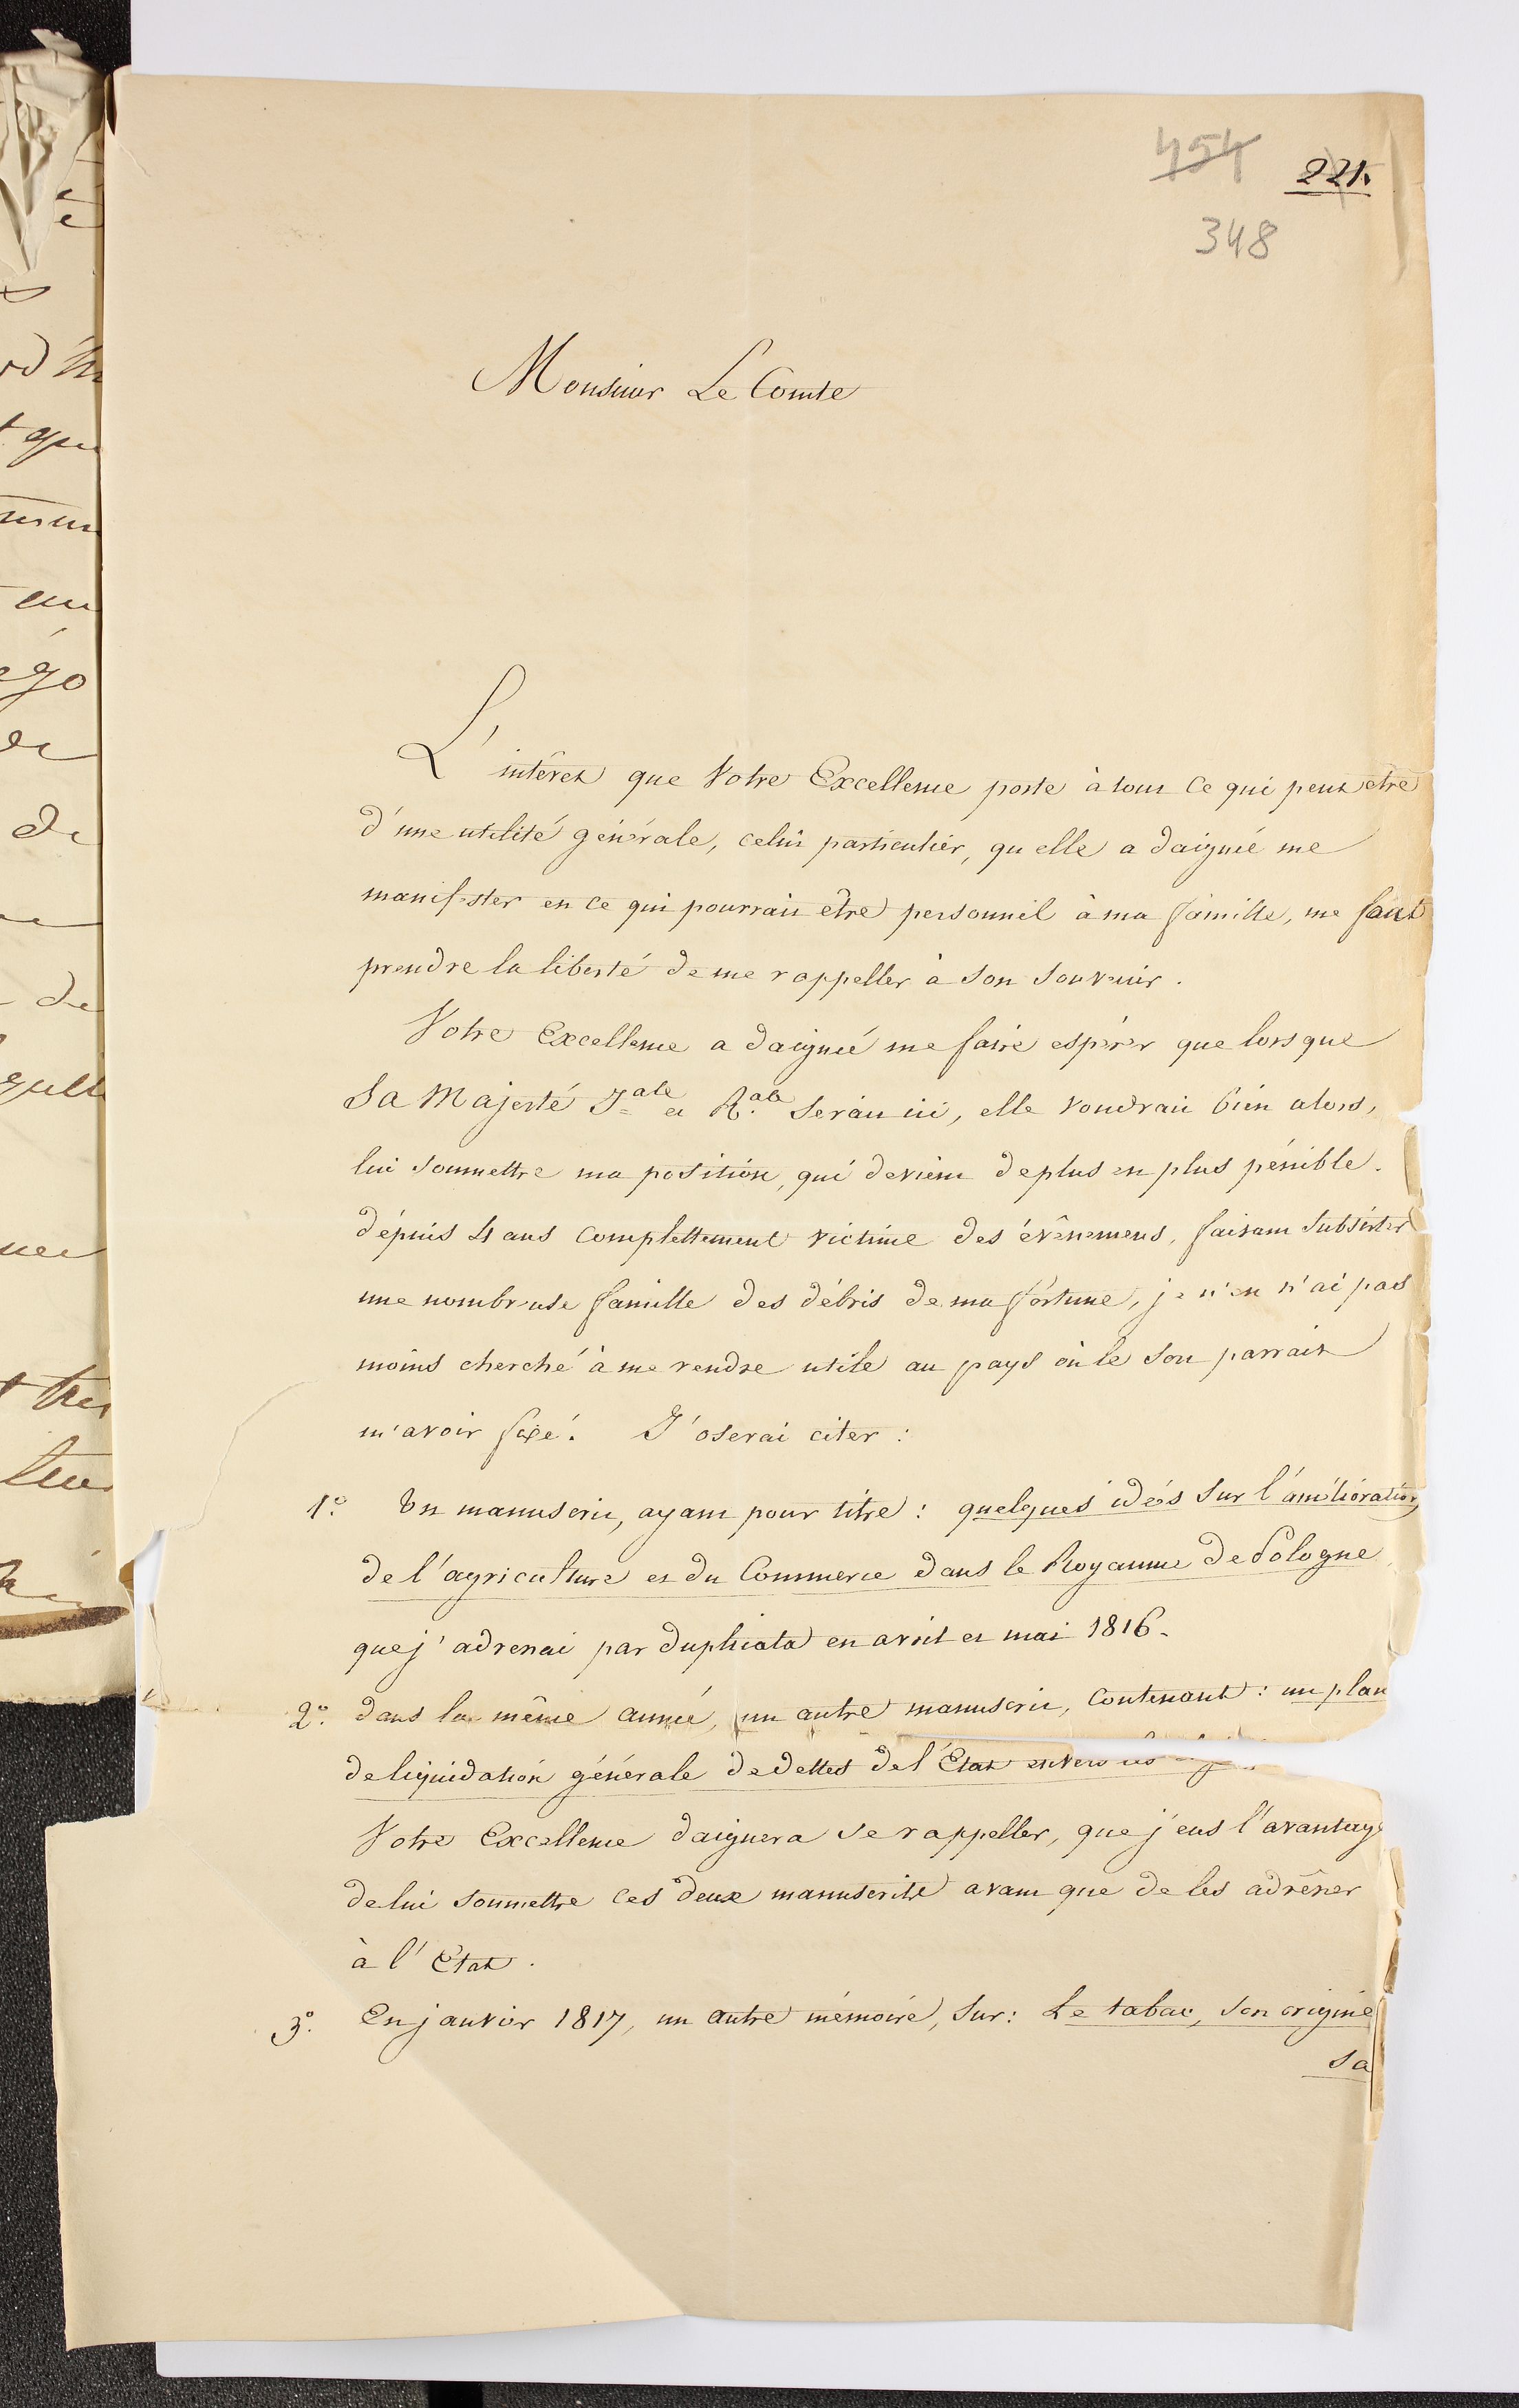 454 221.
348
Monsieur Le Comte
L'intérêt que Votre Excellence porte à tout ce qui peut etre
d'une utilité générale, celui particulier, qu elle a daigné me
manifester en ce qui pourrait être personnel à ma famille, me fait
prendre la liberté de me rappeller à son souvenir.
Votre Excellence a daigné me faire espérer que lorsque
Sa Majesté Iale et Rale serait ici, elle voudrait bien alors,
lui soumettre ma position, qui devient de plus en plus pénible.
dépuis 4 ans complettement victime des évênemens, faisant subsister
une nombreuse famille des débris de ma fortune, je n'en n'ai pas
moins cherché à me rendre utile au pays où le sort parrait
m'avoir fixé. J'oserai citer:
1o. Un manuscrit, ayant pour titre: quelques idés sur l'amélioration
de l'agriculture et du Commerce dans le Royaume de Pologne
que j'adressai par duplicata en avril et mai 1816.
2o. dans la même année, un autre manuscrit, contenant: un plan
de liquidation générale de dettes de l'Etat envers les
Votre Excellence daignera se rappeller, que j'eus l'avantage
de lui soumettre ces deux manuscrits avant que de les adrêsser
à l'Etat.
3o. En janvier 1817, un autre mémoire, sur: Le tabac, son origine
sa